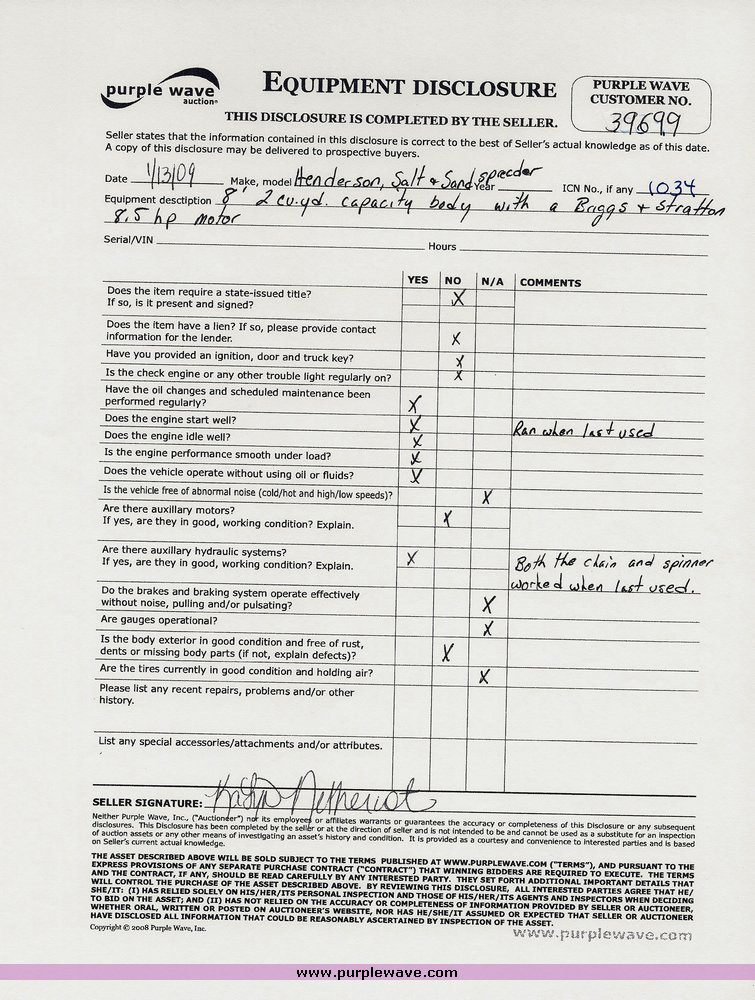 purple wave
auction®
EQUIPMENT DISCLOSURE
PURPLE WAVE
CUSTOMER NO.
39699
THIS DISCLOSURE IS COMPLETED BY THE SELLER.
Seller states that the information contained in this disclosure is correct to the best of Seller's actual knowledge as of this date.
A copy of this disclosure may be delivered to prospective buyers.
Date 1/13/09 Make, model Henderson, Salt & Sand spreader Year ICN No., if any 1034
Equipment desctiption 8' 2 cu.yd. capacity body with a Briggs + Stratton
8.5 hp motor
Serial/VIN Hours
YES NO N/A COMMENTS
Does the item require a state-issued title?
If so, is it present and signed? X
Does the item have a lien? If so, please provide contact
information for the lender. X
Have you provided an ignition, door and truck key? X
Is the check engine or any other trouble light regularly on? X
Have the oil changes and scheduled maintenance been
performed regularly? X
Does the engine start well? X Ran when last used
Does the engine idle well? X
Is the engine performance smooth under load? X
Does the vehicle operate without using oil or fluids? X
Is the vehicle free of abnormal noise (cold/hot and high/low speeds)? X
Are there auxillary motors?
If yes, are they in good, working condition? Explain. X
Are there auxillary hydraulic systems? X
If yes, are they in good, working condition? Explain. Both the chain and spinner
worked when last used.
Do the brakes and braking system operate effectively
without noise, pulling and/or pulsating? X
Are gauges operational? X
Is the body exterior in good condition and free of rust,
dents or missing body parts (if not, explain defects)? X
Are the tires currently in good condition and holding air? X
Please list any recent repairs, problems and/or other
history.
List any special accessories/attachments and/or attributes.
SELLER SIGNATURE:
Neither Purple Wave, Inc., ("Auctioneer") nor its employees or affiliates warrants or guarantees the accuracy or completeness of this Disclosure or any subsequent
disclosures. This Disclosure has been completed by the seller or at the direction of seller and is not intended to be and cannot be used as a substitute for an inspection
of auction assets or any other means of investigating an asset's history and condition. It is provided as a courtesy and convenience to interested parties and is based
on Seller's current actual knowledge.
THE ASSET DESCRIBED ABOVE WILL BE SOLD SUBJECT TO THE TERMS PUBLISHED AT WWW.PURPLEWAVE.COM ("TERMS"), AND PURSUANT TO THE
EXPRESS PROVISIONS OF ANY SEPARATE PURCHASE CONTRACT ("CONTRACT") THAT WINNING BIDDERS ARE REQUIRED TO EXECUTE. THE TERMS
AND THE CONTRACT, IF ANY, SHOULD BE READ CAREFULLY BY ANY INTERESTED PARTY. THEY SET FORTH ADDITIONAL IMPORTANT DETAILS THAT
WILL CONTROL THE PURCHASE OF THE ASSET DESCRIBED ABOVE. BY REVIEWING THIS DISCLOSURE, ALL INTERESTED PARTIES AGREE THAT HE/
SHE/IT: (I) HAS RELIED SOLELY ON HIS/HER/ITS PERSONAL INSPECTION AND THOSE OF HIS/HER/ITS AGENTS AND INSPECTORS WHEN DECIDING
TO BID ON THE ASSET; AND (II) HAS NOT RELIED ON THE ACCURACY OR COMPLETENESS OF INFORMATION PROVIDED BY SELLER OR AUCTIONEER,
WHETHER ORAL, WRITTEN OR POSTED ON AUCTIONEER'S WEBSITE, NOR HAS HE/SHE/IT ASSUMED OR EXPECTED THAT SELLER OR AUCTIONEER
HAVE DISCLOSED ALL INFORMATION THAT COULD BE REASONABLY ASCERTAINED BY INSPECTION OF THE ASSET.
Copyright © 2008 Purple Wave, Inc.
www.purplewave.com
www.purplewave.com